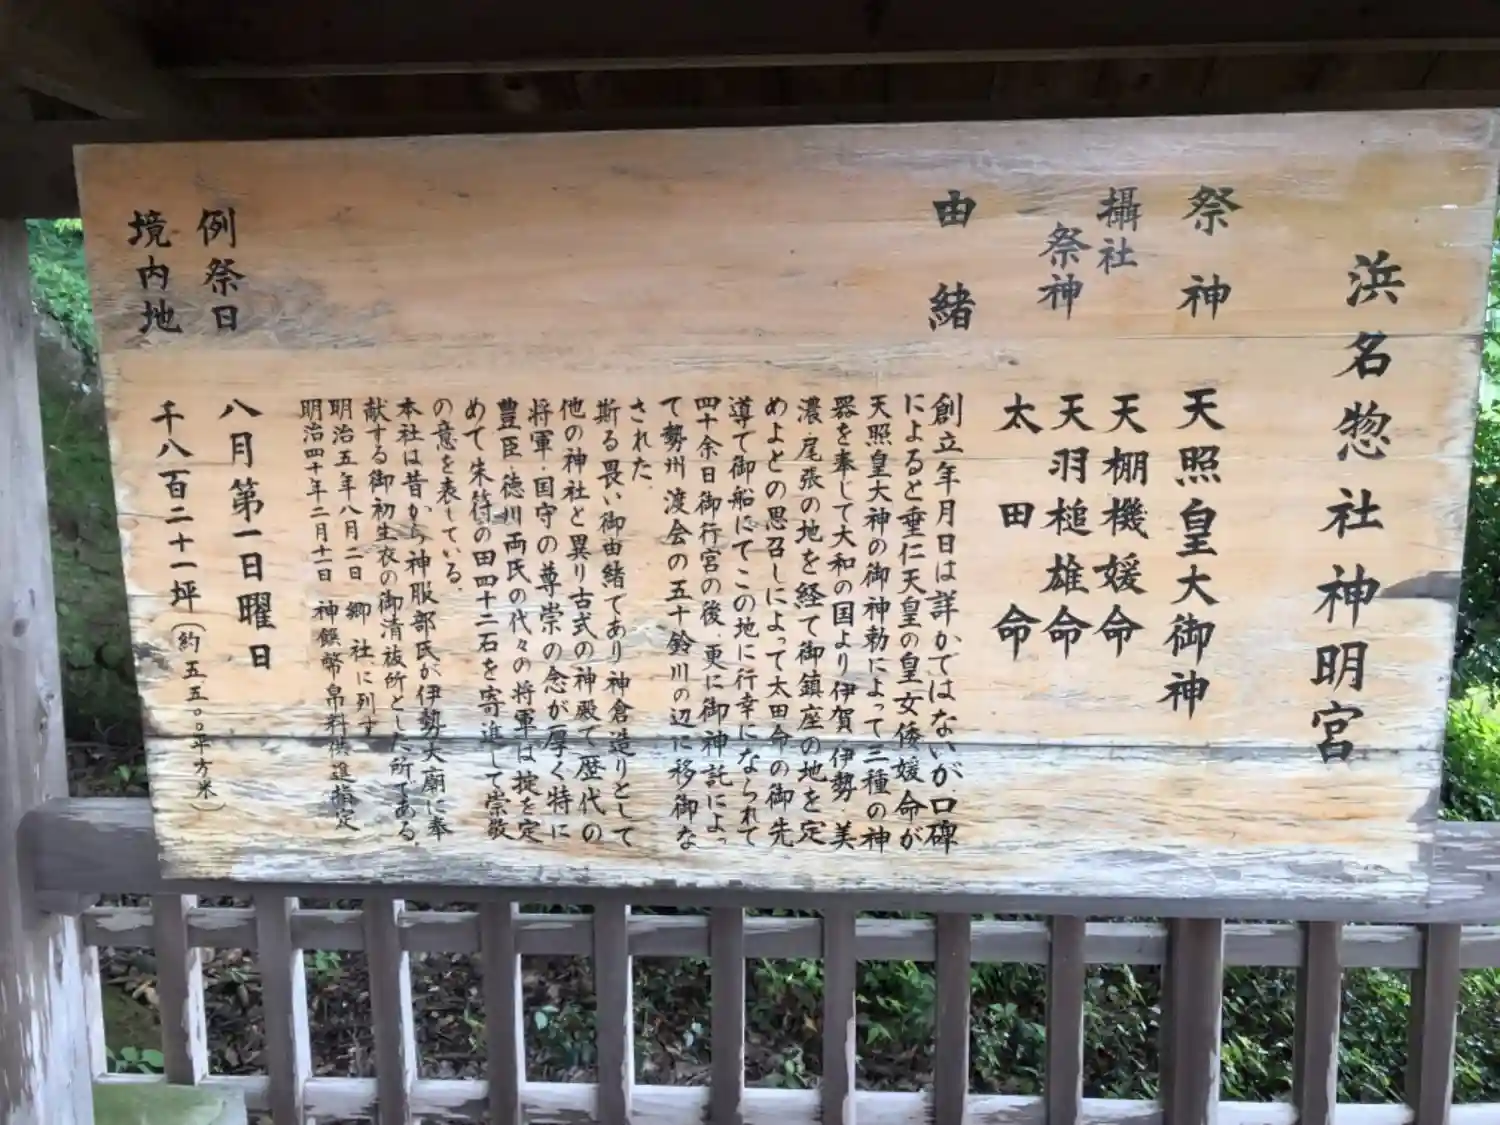 浜名惣社神明宮
祭神 天照皇大御神
攝社 天棚機媛命
祭神 天羽槌雄命
太田命
由緒
創立年月日は詳かではないが、口碑
によると垂仁天皇の皇女倭媛命が
天照皇大神の御神勅によって三種の神
器を奉じて大和の国より伊賀 伊勢 美
濃・尾張の地を経て御鎮座の地を定
めよとの思召しによって太田命の御先
導で御船にてこの地に行幸になられて
四十余日御行宮の後、更に御神託によっ
て勢州渡会の五十鈴川の辺に移御な
された。
斯る畏い御由緒であり神倉造りとして
他の神社と異り古式の神殿で歴代の
将軍・国守の尊崇の念が厚く特に
豊臣・徳川両氏の代々の将軍は掟を定
めて朱符の田四十二石を寄進して崇敬
の意を表している。
本社は昔から神服部氏が伊勢大廟に奉
献する御初生衣の御清祓所とした所である。
明治五年八月二日 郷社に列す
明治四十年二月十一日 神饌幣帛料供進指定
例祭日 八月第一日曜日
境内地 千八百二十一坪(約五五〇〇平方米)